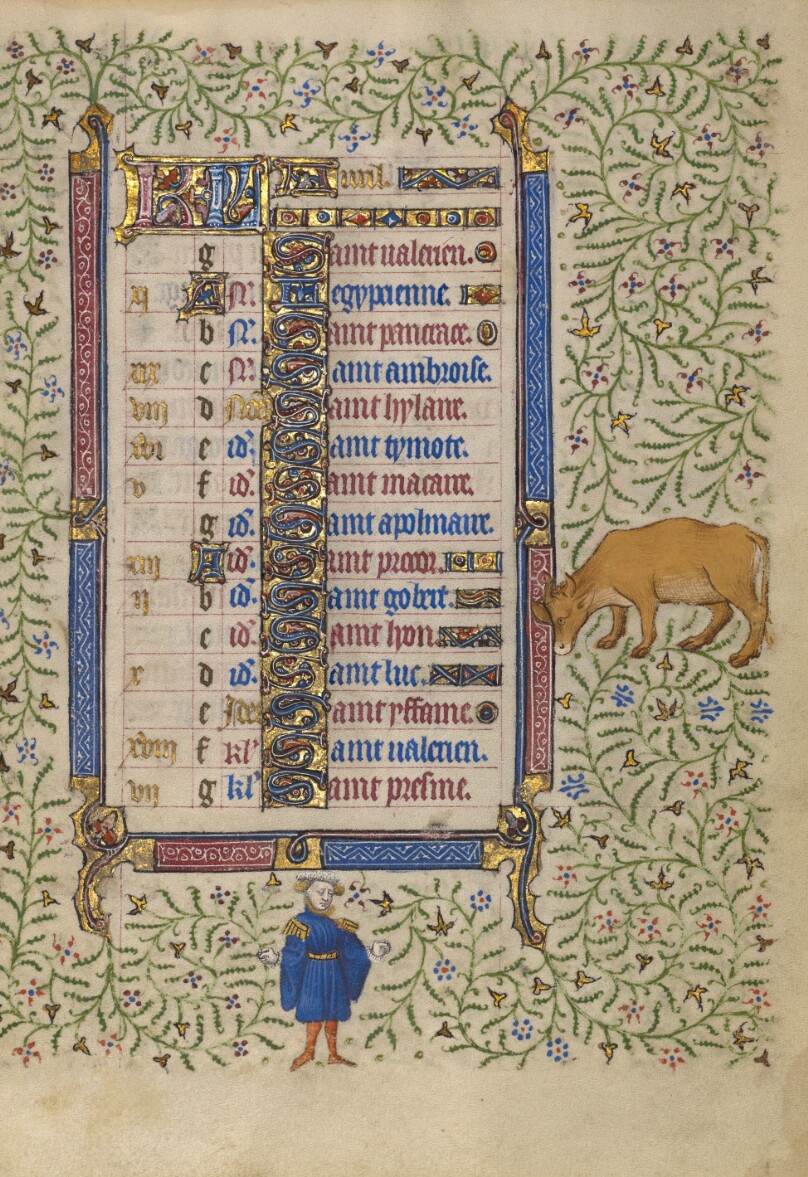 KL Auril.
g Saint ualerien.
xi A N. Megypcienne.
b N. Saint pancrace.
xix c N. Saint ambroise.
viii d Non Saint hylaire.
xvi e id. Saint tymote.
v f id. Saint macaire.
g id. Saint apolinaire.
xiii A id. Saint procor.
ii b id. Saint gobert.
c id. Saint lyon.
x d id. Saint luc.
e Ides Saint yffame.
xviii f kl' Saint ualerien.
vii g kl' Saint presme.